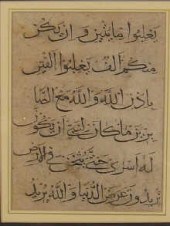 يغلبوا مائتين وإن يكن
منكم ألف يغلبوا ألفين
بإذن الله والله مع الصا
برين ما كان لنبي أن يكون
له أسرى حتى يثخن في الأرض
تريدون عرض الدنيا والله يريد